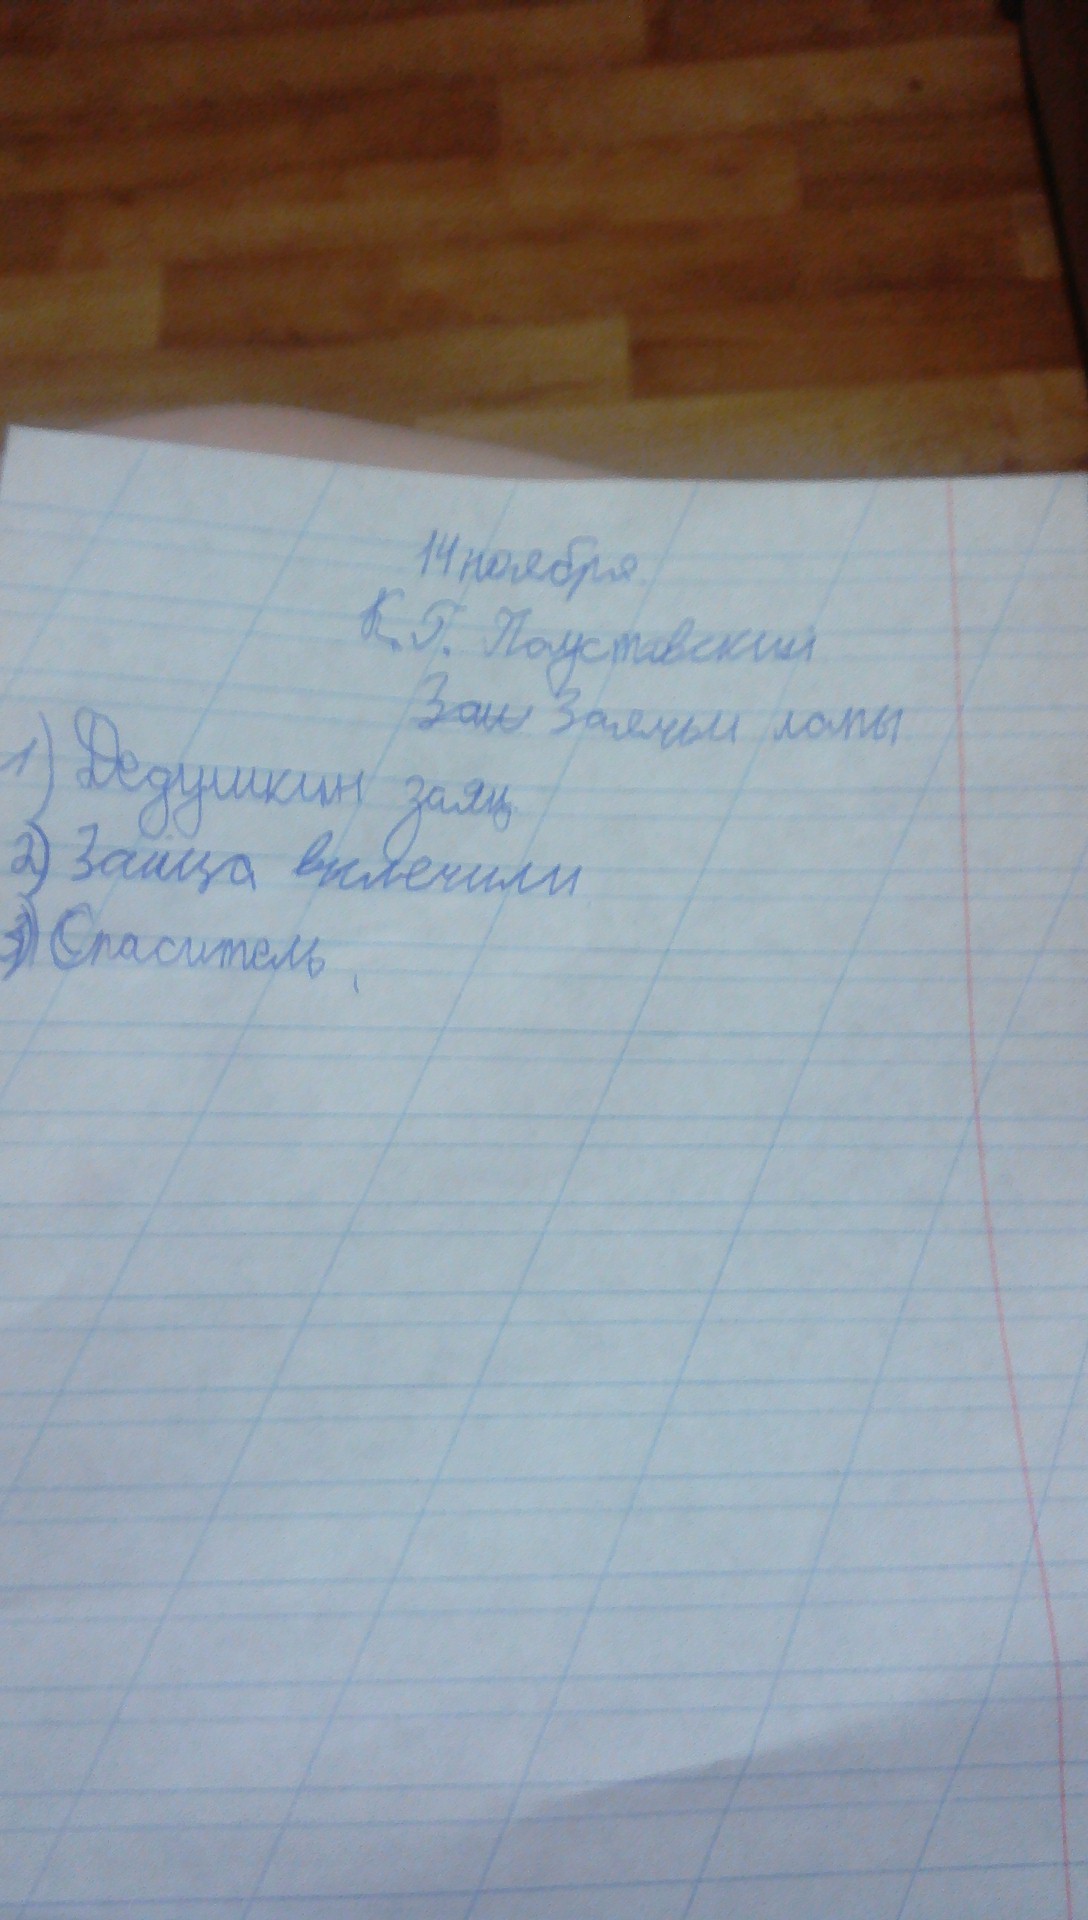 14 ноября
К. Г. Паустовский
Заи Заячьи лапы
1) Дедушкин заяц
2) Зайца вылечили
3) Спаситель.